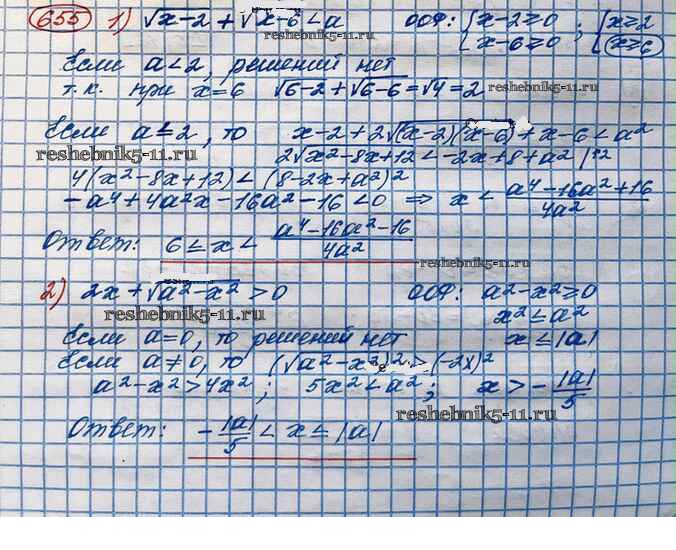 655 1) √x-2 + √x-6 < a ООФ: { x-2≥0 x-6≥0 ; { x≥2 x≥6
reshebnik5-11.ru
Если a<2, решений нет
т.к. при x=6 √6-2 + √6-6 = √4 = 2 reshebnik5-11.ru
Если a≤2, то x-2+2√(x-2)(x-6) + x-6 < a²
reshebnik5-11.ru 2√x²-8x+12 < -2x+8+a² |↑2
4(x²-8x+12) < (8-2x+a²)²
-a⁴+4a²x-16a²-16<0 ⇒ x < a⁴-16a²+16 / 4a²
reshebnik5-11.ru
Ответ: 6 ≤ x < a⁴-16a²-16 / 4a²
reshebnik5-11.ru
2) 2x + √a²-x² > 0 ООФ: a²-x²≥0
reshebnik5-11.ru x² ≤ a²
Если a=0, то решений нет x ≤ |a|
Если a≠0, то (√a²-x²)² > (-2x)²
a²-x²>4x² ; 5x²<a² ; x > - |a| / 5
reshebnik5-11.ru
Ответ: - |a| / 5 < x ≤ |a|
reshebnik5-11.ru